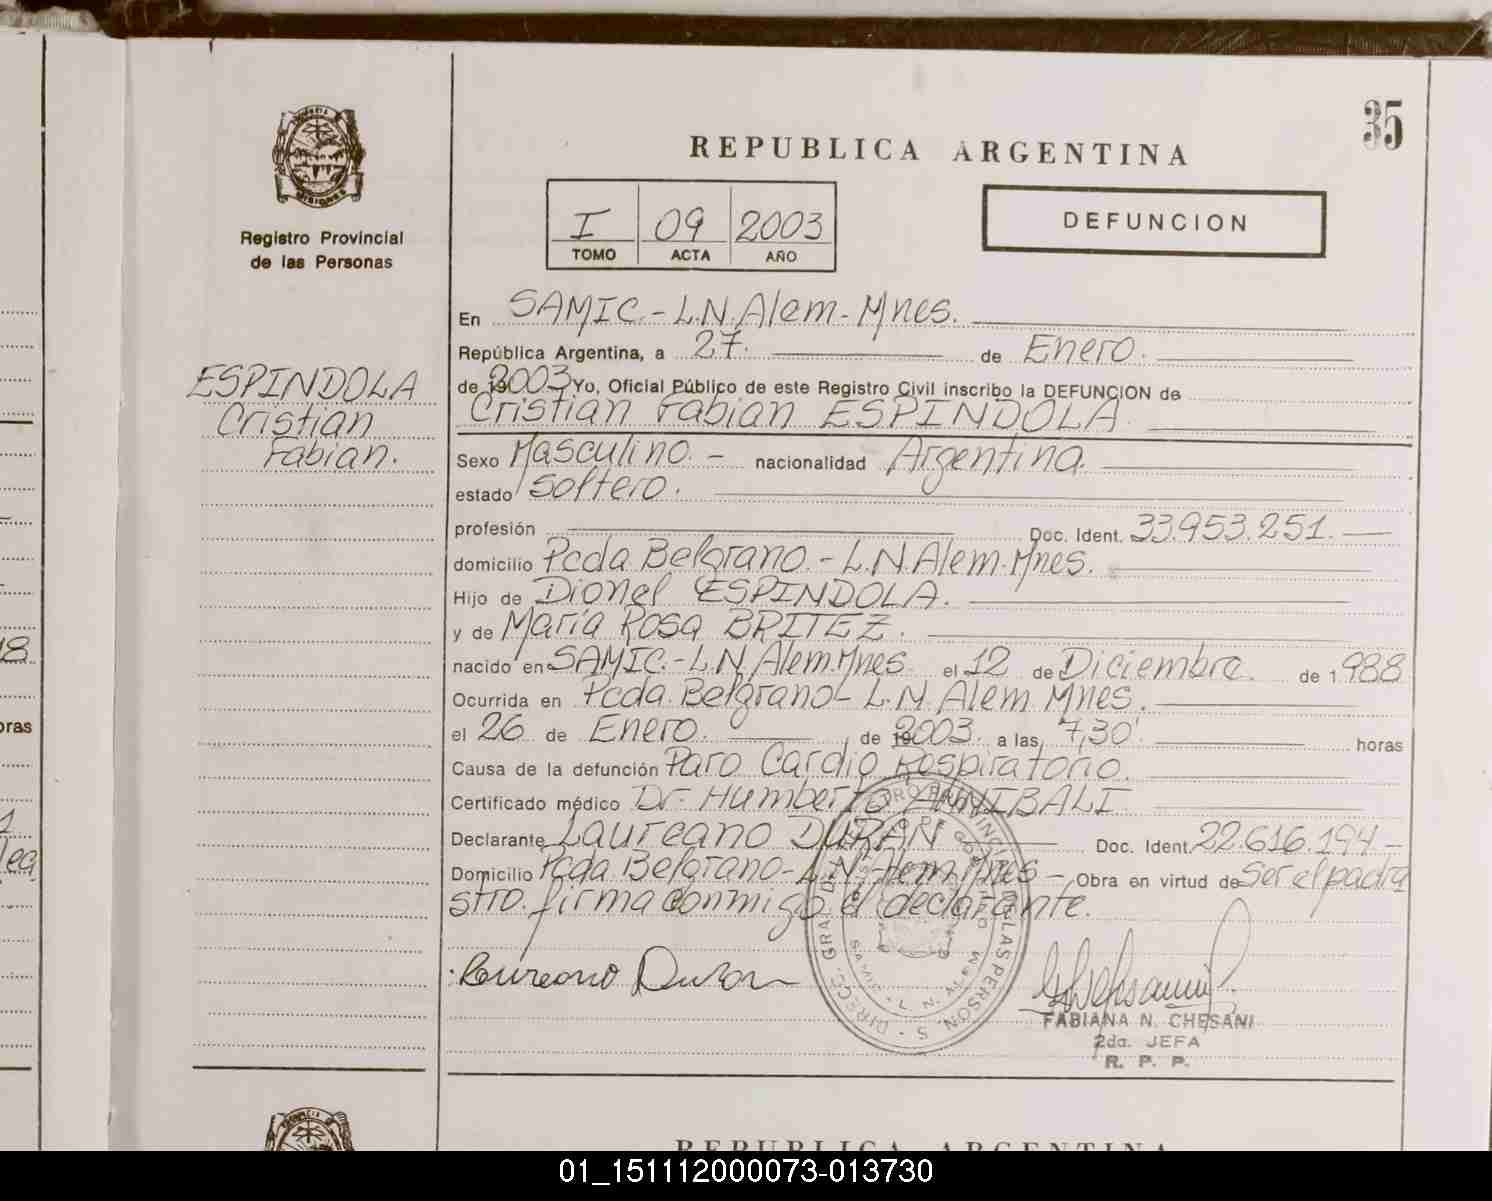 35
REPUBLICA ARGENTINA
MISIONES
Registro Provincial
de las Personas
I 09 2003
TOMO ACTA AÑO
DEFUNCION
ESPINDOLA
Cristian
Fabian.
En SAMIC.-L.N.Alem-Mnes.
República Argentina, a 27. de Enero.
de 2003 Yo, Oficial Público de este Registro Civil inscribo la DEFUNCION de
Cristian Fabian ESPINDOLA
Sexo Masculino. - nacionalidad Argentina.
estado Soltero.
profesión Doc. Ident. 33.953.251.-
domicilio Pcda Belgrano.-L.N.Alem.Mnes.
Hijo de Dionel ESPINDOLA.
y de María Rosa BRITEZ.
nacido en SAMIC.-L.N.Alem.Mnes. el 12 de Diciembre. de 1.988
Ocurrida en Pcda. Belgrano-L.N.Alem Mnes.
el 26 de Enero. de 2003. a las 7,30' horas
Causa de la defunción Paro Cardio Respiratorio.
Certificado médico Dr. Humberto ANNIBALI
Declarante Laureano DURAN Doc. Ident. 22.616.194.-
Domicilio Pcda Belgrano-L.N.Alem.Mnes- Obra en virtud de Ser el padra
stro. firma conmigo el declarante.
Laureano Duran
FABIANA N. CHESANI
2da. JEFA
R. P. P.
18
oras
REPUBLICA ARGENTINA
01_151112000073-013730